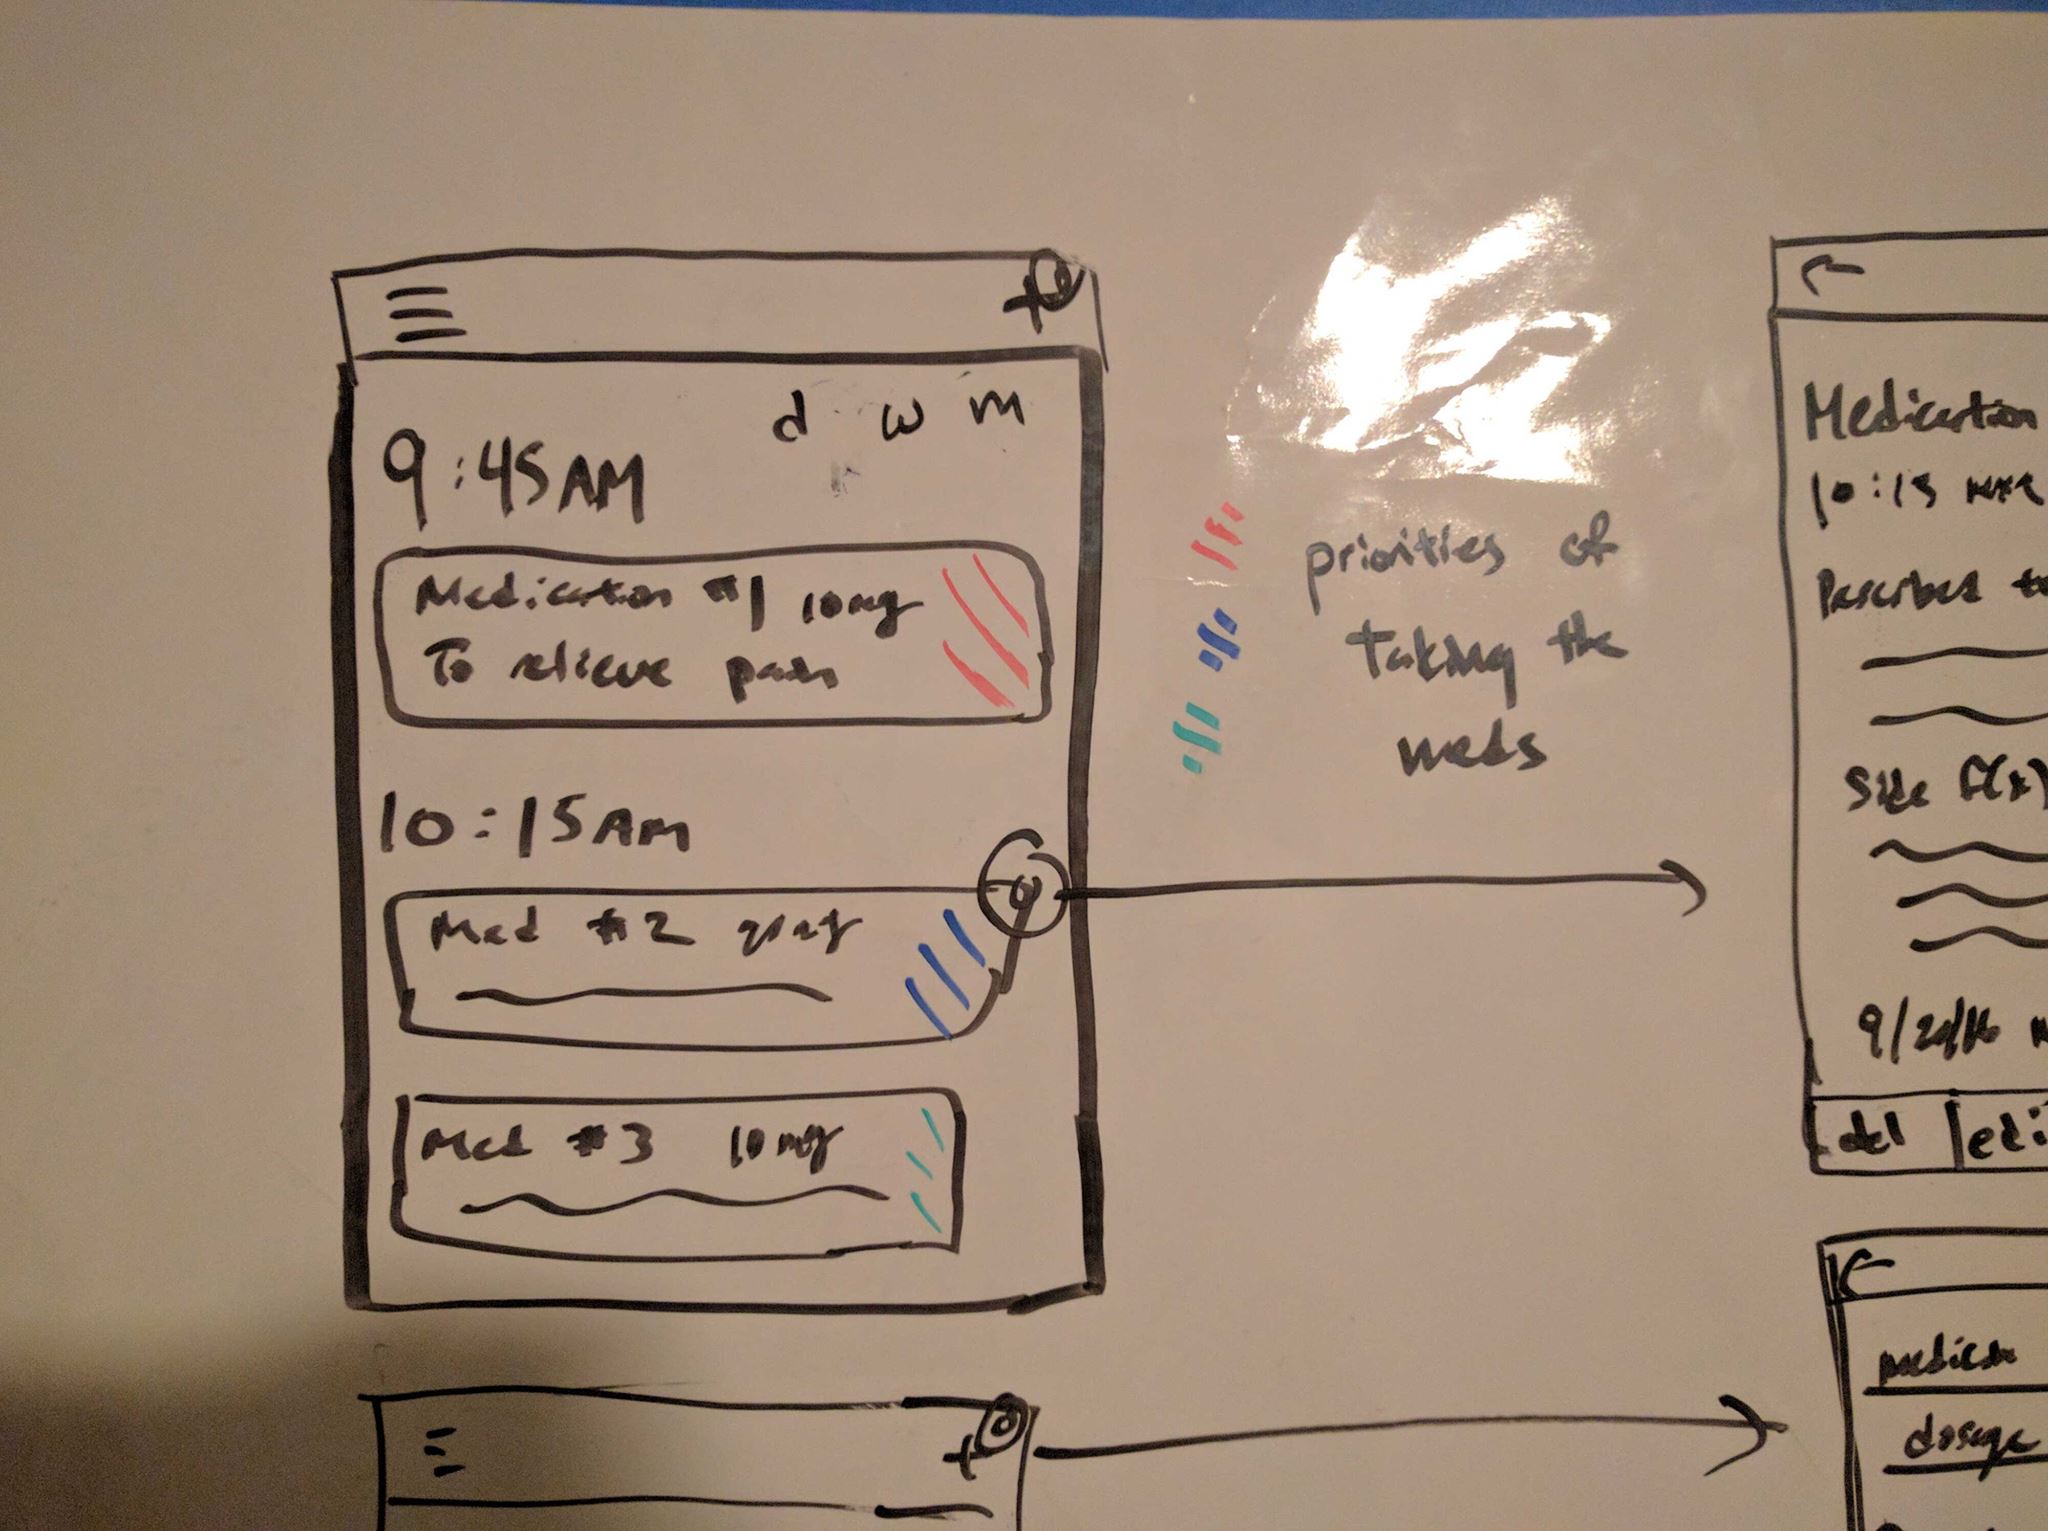 d w m
9:45AM
Medication #1 10mg
To relieve pain
10:15AM
Med #2
Med #3 10mg
priorities of
taking the
meds
Medication
10:15
Side F(x)
del | edi
dosage